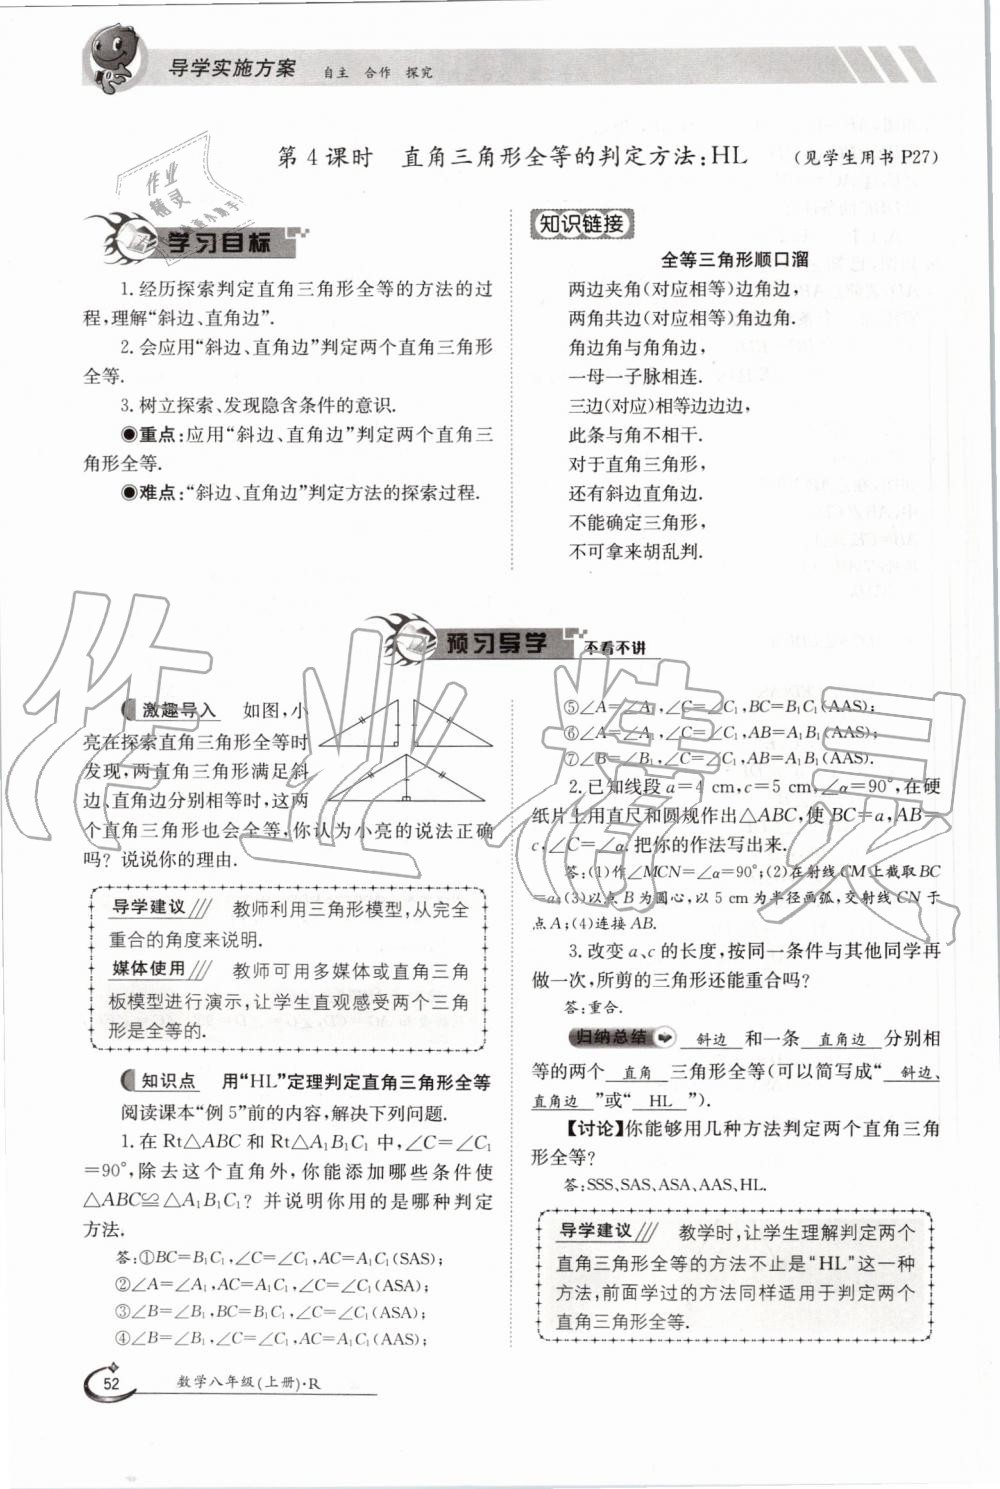 导学实施方案 自主 合作 探究
第4课时 直角三角形全等的判定方法:HL (见学生用书 P27)
作业
精灵
学习目标
1.经历探索判定直角三角形全等的方法的过
程,理解“斜边、直角边”.
2.会应用“斜边、直角边”判定两个直角三角形
全等.
3.树立探索、发现隐含条件的意识.
◉重点:应用“斜边、直角边”判定两个直角三
角形全等.
◉难点:“斜边、直角边”判定方法的探索过程.
知识链接
全等三角形顺口溜
两边夹角(对应相等)边角边,
两角共边(对应相等)角边角.
角边角与角角边,
一母一子脉相连.
三边(对应)相等边边边,
此条与角不相干.
对于直角三角形,
还有斜边直角边.
不能确定三角形,
不可拿来胡乱判.
预习导学 不看不讲
激趣导入 如图,小
亮在探索直角三角形全等时
发现,两直角三角形满足斜
边、直角边分别相等时,这两
个直角三角形也会全等,你认为小亮的说法正确
吗?说说你的理由.
导学建议 教师利用三角形模型,从完全
重合的角度来说明.
媒体使用 教师可用多媒体或直角三角
板模型进行演示,让学生直观感受两个三角
形是全等的.
知识点 用“HL”定理判定直角三角形全等
阅读课本“例5”前的内容,解决下列问题.
1.在Rt△ABC和Rt△A₁B₁C₁中,∠C=∠C₁
=90°,除去这个直角外,你能添加哪些条件使
△ABC≌△A₁B₁C₁?并说明你用的是哪种判定
方法.
答:①BC=B₁C₁,∠C=∠C₁,AC=A₁C₁(SAS);
②∠A=∠A₁,AC=A₁C₁,∠C=∠C₁(ASA);
③∠B=∠B₁,BC=B₁C₁,∠C=∠C₁(ASA);
④∠B=∠B₁,∠C=∠C₁,AC=A₁C₁(AAS);
⑤∠A=∠A₁,∠C=∠C₁,BC=B₁C₁(AAS);
⑥∠A=∠A₁,∠C=∠C₁,AB=A₁B₁(AAS);
⑦∠B=∠B₁,∠C=∠C₁,AB=A₁B₁(AAS).
2.已知线段a=4 cm,c=5 cm,∠α=90°,在硬
纸片上用直尺和圆规作出△ABC,使BC=a,AB=
c,∠C=∠α.把你的作法写出来.
答:(1)作∠MCN=∠α=90°;(2)在射线CM上截取BC
=a;(3)以点B为圆心,以5 cm为半径画弧,交射线CN于
点A;(4)连接AB.
3.改变a、c的长度,按同一条件与其他同学再
做一次,所剪的三角形还能重合吗?
答:重合.
归纳总结 斜边 和一条 直角边 分别相
等的两个 直角 三角形全等(可以简写成“ 斜边、
直角边 ”或“ HL ”).
【讨论】你能够用几种方法判定两个直角三角
形全等?
答:SSS,SAS,ASA,AAS,HL.
导学建议 教学时,让学生理解判定两个
直角三角形全等的方法不止是“HL”这一种
方法,前面学过的方法同样适用于判定两个
直角三角形全等.
52 数学八年级(上册)·R
作业精灵